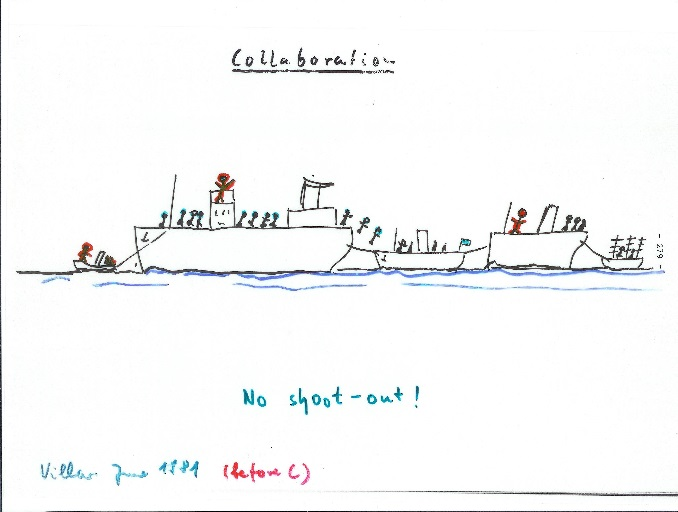 Collaboration
- 229 -
No shoot-out!
Villars June 1981 (before C)